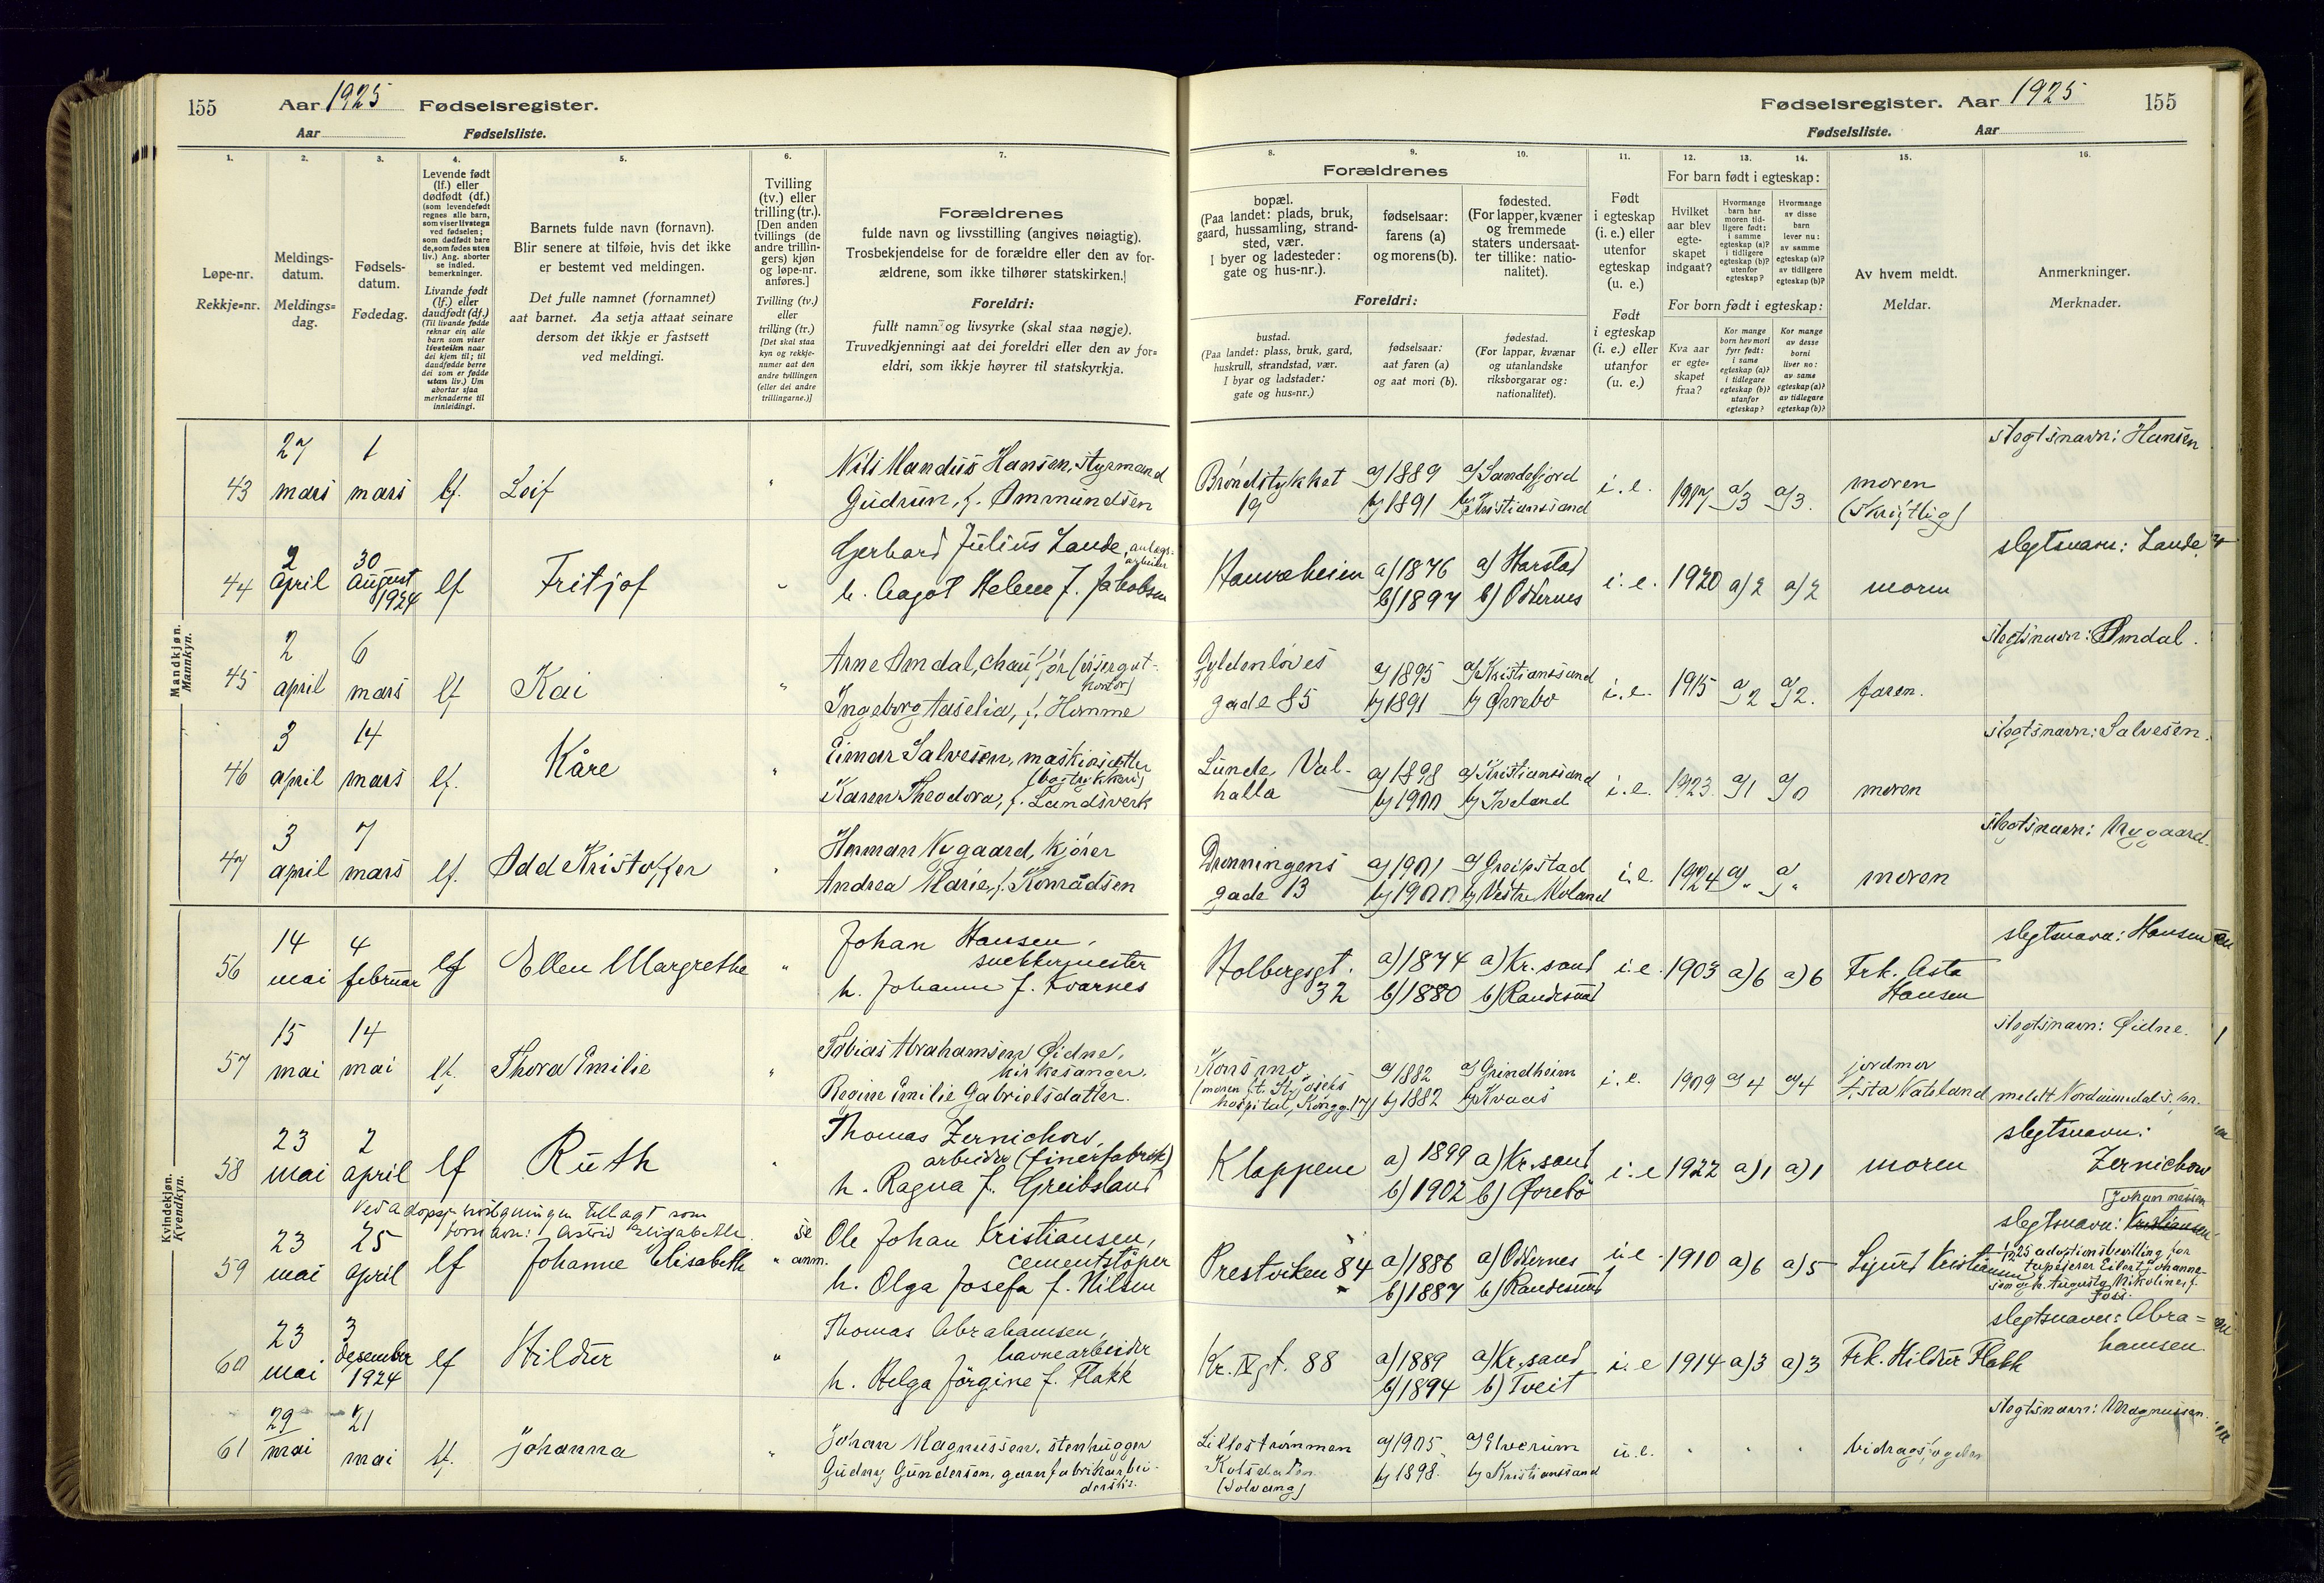 155 Aar 1925 Fødselsregister.
Aar Fødselsliste.
Fødselsregister. Aar 1925 155
Fødselsliste. Aar
1. 2. 3. 4. 5. 6. 7.
Løpe-nr.
Rekkje=nr.
Meldings-
datum.
Meldings=
dag.
Fødsels-
datum.
Fødedag.
Levende født
(lf.) eller
dødfødt (df.)
(som levendefødt
regnes alle barn,
som viser livstegn
ved fødselen;
som dødfødt bare
de, som fødes uten
liv.) Ang. aborter
se indled.
bemerkninger.
Livande født
(lf.) eller
daudfødt (df.)
(Til livande fødde
reknar ein alle
barn som viser
livsteikn naar
dei kjem til; til
daudfødde berre
dei som er fødde
utan liv.) Um
abortar sjaa
merknaderne til
innleidingi.
Barnets fulde navn (fornavn).
Blir senere at tilføie, hvis det ikke
er bestemt ved meldingen.
Det fulle namnet (fornamnet)
aat barnet. Aa setja attaat seinare
dersom det ikkje er fastsett
ved meldingi.
Tvilling
(tv.) eller
trilling (tr.).
[Den anden
tvillings (de
andre trillin-
gers) kjøn
og løpe-nr.
anføres.]
Tvilling (tv.)
eller
trilling (tr.)
[Det skal staa
kyn og rekkje-
numer aat den
andre tvillingen
(eller dei andre
trillingarne.)]
Forældrenes
fulde navn og livsstilling (angives nøiagtig).
Trosbekjendelse for de forældre eller den av for-
ældrene, som ikke tilhører statskirken.]
Foreldri:
fullt namn og livsyrke (skal staa nøgje).
Truvedkjenningi aat dei foreldri eller den av for=
eldri, som ikkje høyrer til statskyrkja.
8. 9. 10. 11. 12. 13. 14. 15. 16.
Forældrenes
bopæl.
(Paa landet: plads, bruk,
gaard, hussamling, strand-
sted, vær.
I byer og ladesteder:
gate og hus-nr.).
fødselsaar:
farens (a)
og morens (b).
fødested.
(For lapper, kvæner
og fremmede
staters undersaat-
ter tillike: natio-
nalitet).
Foreldri:
bustad.
(Paa landet: plass, bruk, gard,
huskrull, strandstad, vær.
I byar og ladstader:
gate og hus=nr.)
fødselsaar:
aat faren (a)
og aat mori (b).
fødestad.
(For lappar, kvænar
og utanlandske
riksborgarar og:
nationalitet).
Født
i egteskap
(i. e.) eller
utenfor
egteskap
(u. e.)
Født
i egteskap
(i. e.) eller
utanfor
(u. e.)
For barn født i egteskap:
Hvilket
aar blev
egte-
skapet
indgaat?
Hvormange
barn har
moren tid-
ligere født:
i samme
egteskap (a)?
i tidligere
egteskap (b)?
utenfor
egteskap?
Hvormange
av disse
barn
lever nu:
av samme
egteskap (a)?
av tidligere
egteskap (b)?
For born født i egteskap:
Kva aar
er egte-
skapet
fraa?
Kor mange
born hev mori
fyrr født:
i same
egteskap (a)?
i tidlegare
egteskap (b)?
utanfor
egteskap?
Kor mange
av desse
borni
liver no:
av same
egteskap (a)?
av tidlegare
egteskap (b)?
Av hvem meldt.
Meldar.
Anmerkninger.
Merknader.
Mandkjøn.
Mannkyn.
27 1 slegtsnavn: Hansen
43 mars mars lf. Leif " Nils Mandius Hansen, styrmand
Gudrun, f. Ammundsen
Brøndstykket 19 a) 1889 b) 1891 a) Sandefjord b) Kristianssand i. e. 1917 a) 3 a) 3. moren (skriftlig)
2 30 slegtsnavn: Lande
44 april august 1924 lf Fritjof " Gerhard Julius Lande, anlægs-
arbeider
h. Aagot Helene f. Jakobsen
Hauvaheien a) 1876 b) 1897 a) Harstad b) Oddernes i. e. 1920 a) 2 a) 2 moren
2 6 slegtsnavn: Amdal.
45 april mars lf Kai " Arne Amdal, chauffør
Ingeborg Aaselia, f. Homme
Gyldenløves gade 85 a) 1895 b) 1891 a) Kristianssand b) Øvrebø i. e. 1915 a) 2 a) 2. faren.
3 14 slegtsnavn: Salvesen.
46 april mars lf. Kåre " Einar Salvesen, maskinsætter
(bogtrykkeri)
Karen Theodora, f. Landsverk
Lunde, Val-
halla a) 1898 b) 1900 a) Kristianssand b) Iveland i. e. 1923. a) 1 a) 0 moren
3 7 slegtsnavn: Nygaard.
47 april mars lf. Odd Kristoffer " Herman Nygaard, kjører
Andrea Marie, f. Konradsen
Dronningens gade 13 a) 1901 b) 1900 a) Greipstad b) Vestre Moland i. e. 1924 a) " a) " moren
Kvindekjøn.
Kvendkyn.
14 4 slegtsnavn: Hansen
56 mai februar lf Ellen Margrethe " Johan Hansen,
snekkermester
h. Johanne f. Kvarnes
Holbergsgt. 32 a) 1874 b) 1880 a) Kr.sand b) Randesund i. e. 1903 a) 6 a) 6 Frk. Asta Hansen
15 14 slegtsnavn: Øidne.
57 mai mai lf. Thora Emilie " Tobias Abrahamsen Øidne,
kirkesanger.
Regine Emilie Gabrielsdatter.
Konsmo
(moren f. t. St. Josefs
hospital, Kongg. 17) a) 1882 b) 1882 a) Grindheim b) Kvaas i. e. 1909 a) 4 a) 4 jordmor
Asta Vatsland meldt
23 2 slegtsnavn:
58 mai april lf Ruth " Thomas Zernichow,
arbeider (finerfabrik)
h. Ragna f. Greibsland
Klappene a) 1899 b) 1902 a) Kr.sand b) Øvrebø i. e 1922 a) 1 a) 1 moren Zernichow
Ved adopsjonsbevilgningen tillagt som
fornavn: Astrid Elisabethe. Johannesen
23 25 slegtsnavn: Kristiansen
59 mai april lf Johanne Elisabeth " se anm. Ole Johan Kristiansen,
cementstøper
h. Olga Josefa f. Nilsen
Prestviken 84 a) 1886 b) 1887 a) Oddernes b) Randesund i. e. 1910 a) 6 a) 5 Sigurd Kristiansen
25 adoptionsbevilling for
tapetserer Eilert Johanne-
sen og h. Augusta Nikoline f.
Foss.
23 3 slegtsnavn: Abra=
hamsen
60 mai desember 1924 lf Hildur " Thomas Abrahamsen,
havnearbeider
h. Helga Jørgine f. Flakk
Kr. IV gt. 88 a) 1889 b) 1894 a) Kr.sand b) Tveit i. e 1914 a) 3 a) 3 Frk. Hildur Flakk
29 21 slegtsnavn: Magnussen.
61 mai mai lf. Johanna " Johan Magnussen, stenhugger
Gudny Gundersen, garnfabrikarbei-
derske.
Lillestrømmen
Kolsdalen
(Solvang) a) 1905 b) 1898. a) Elverum b) Kristianssand u. e. " " " bidragsfogden